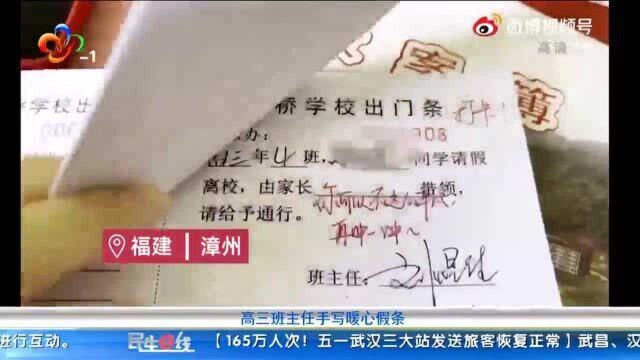 -1
微博视频号
高清
学校出门条
桥学校出门条 打卡
办: 908
高三年4班, 同学请假
离校,由家长 带领,
请给予通行。
再冲一冲~
班主任:
福建 漳州
高三班主任手写暖心假条
进行互动。 民生e线 【165万人次!五一武汉三大站发送旅客恢复正常】武昌、汉